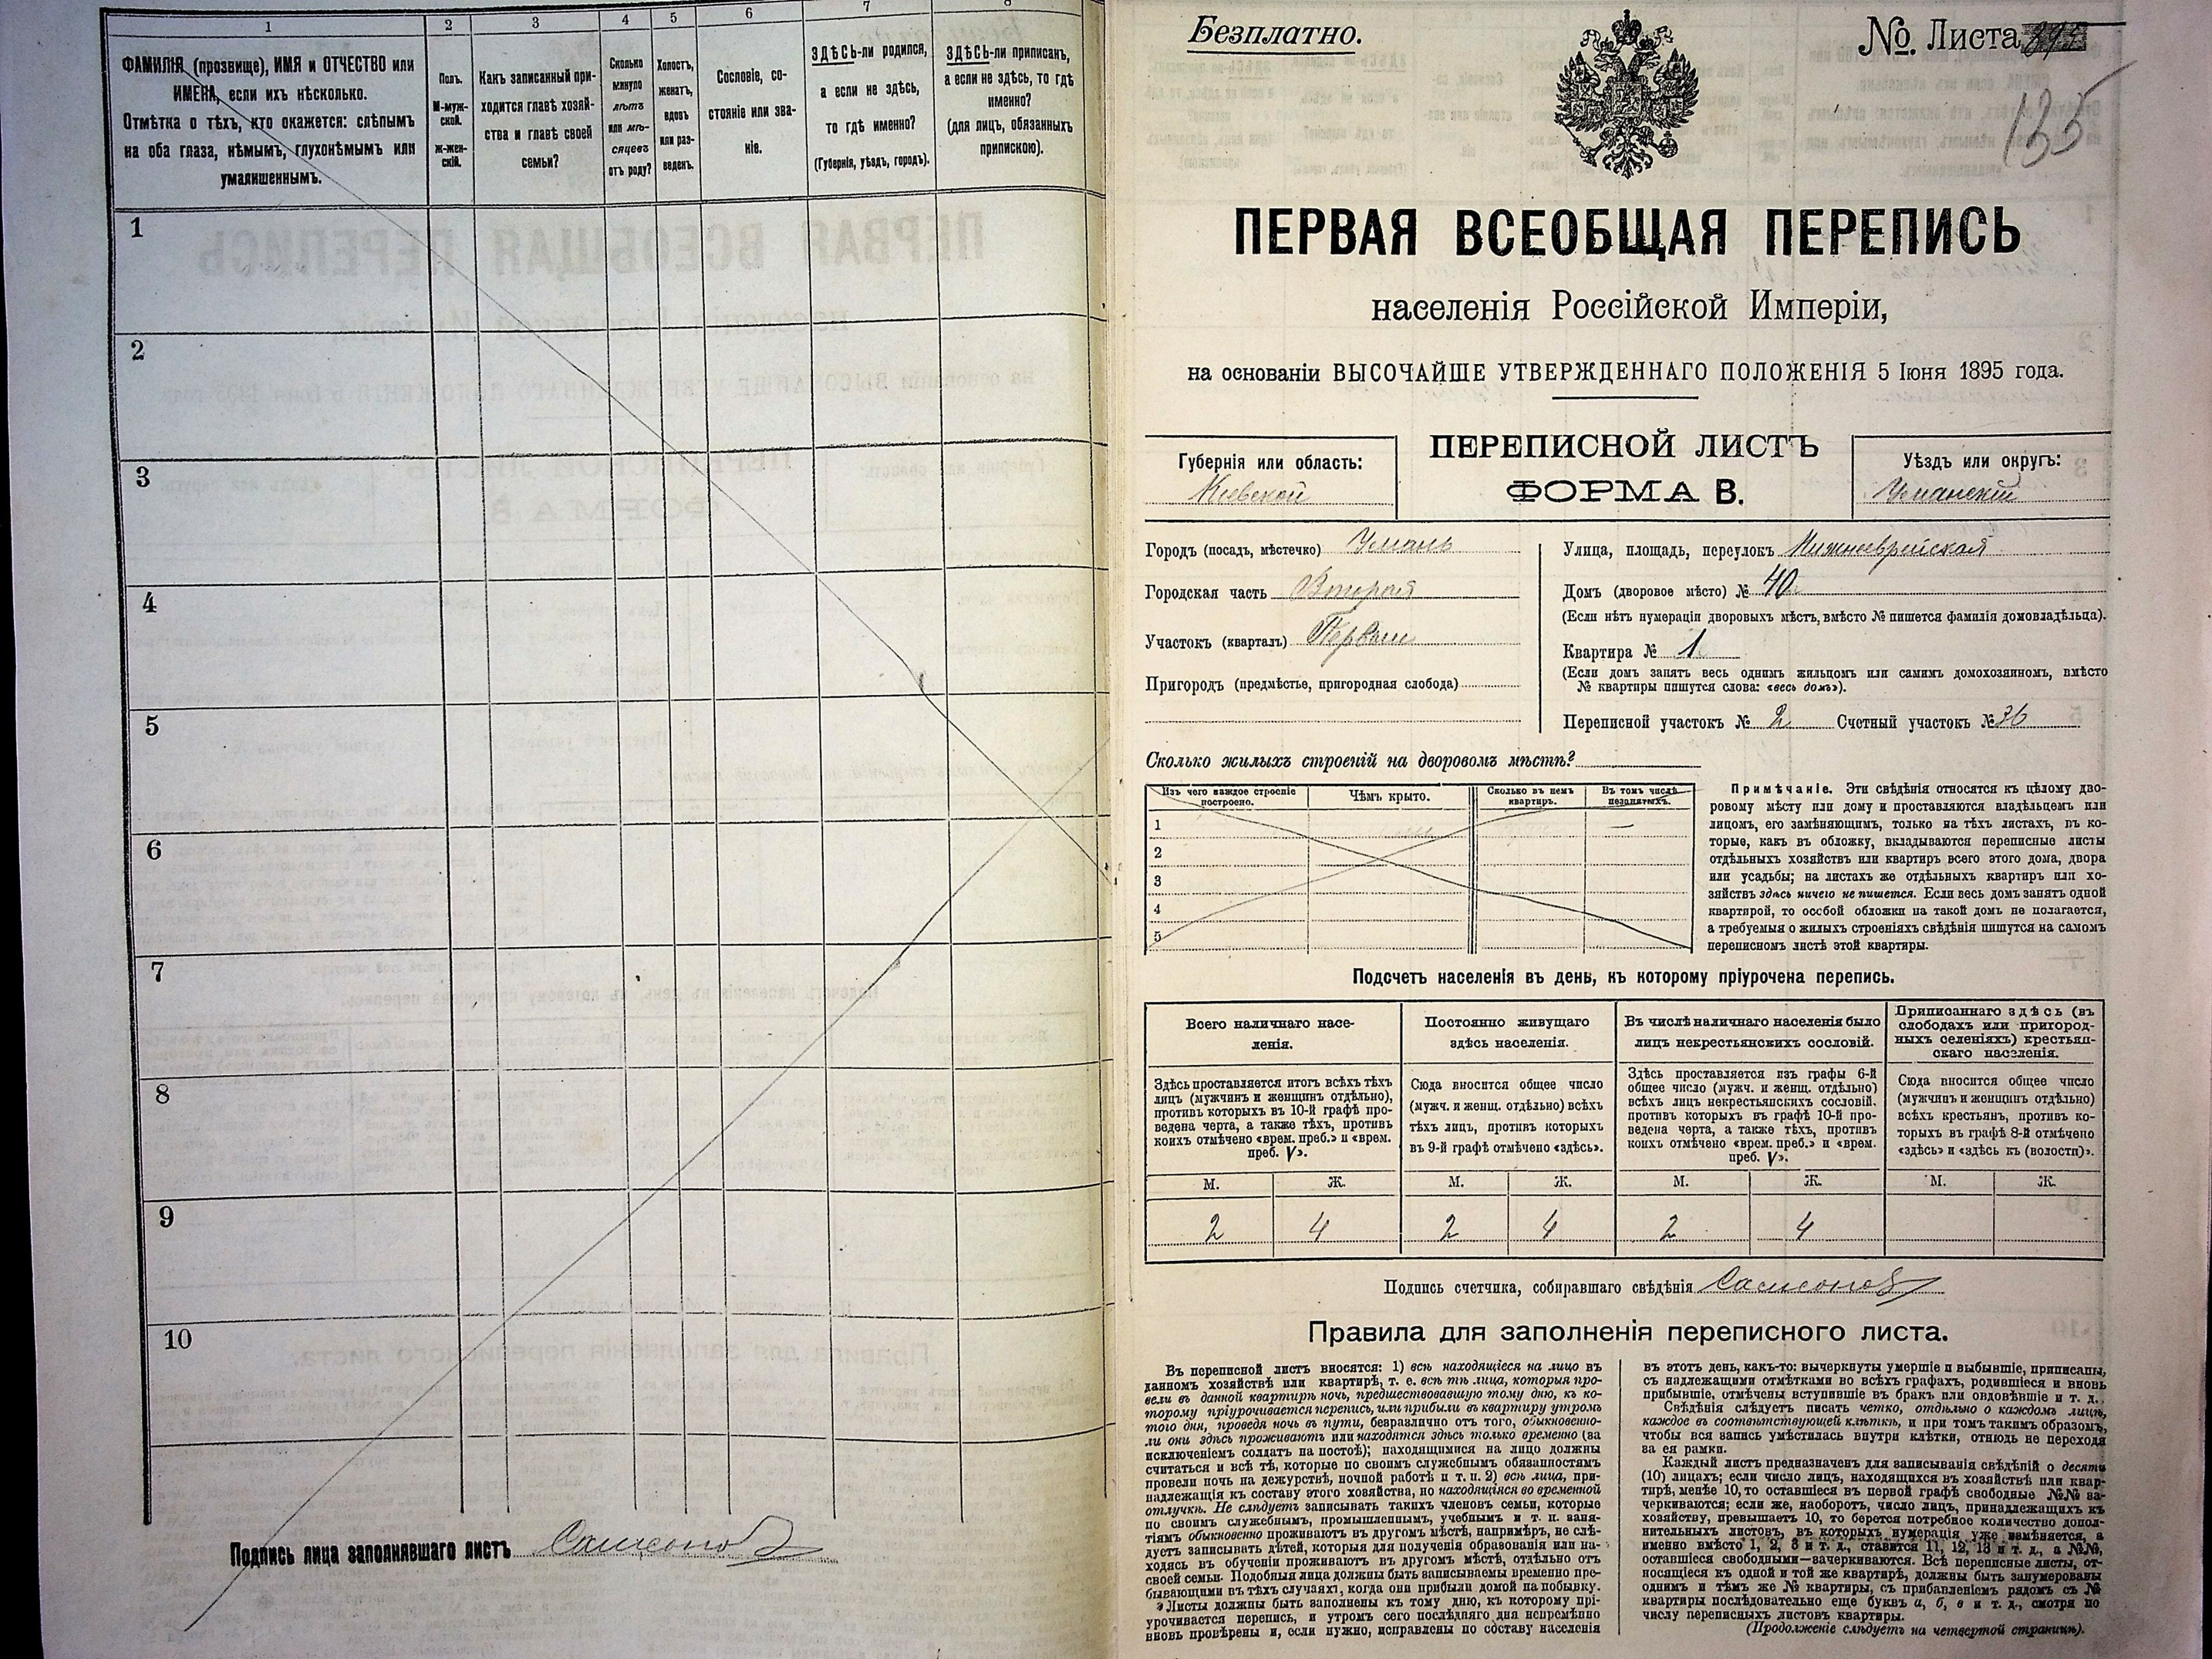 1 2 3 4 5 6 7 8
ФАМИЛІЯ (прозвище), ИМЯ и ОТЧЕСТВО или
ИМЕНА, если ихъ нѣсколько.
Отмѣтка о тѣхъ, кто окажется: слѣпымъ
на оба глаза, нѣмымъ, глухонѣмымъ или
умалишеннымъ.
Полъ.
М-муж-
ской.
Ж-жен-
скій.
Какъ записанный при-
ходится главѣ хозяй-
ства и главѣ своей
семьи?
Сколько
минуло
лѣтъ
или мѣ-
сяцевъ
отъ роду?
Холостъ,
женатъ,
вдовъ
или раз-
веденъ.
Сословіе, со-
стояніе или зва-
ніе.
ЗДѢСЬ-ли родился,
а если не здѣсь,
то гдѣ именно?
(Губернія, уѣздъ, городъ).
ЗДѢСЬ-ли приписанъ,
а если не здѣсь, то гдѣ
именно?
(для лицъ, обязанныхъ
припискою).
1
2
3
4
5
6
7
8
9
10
Подпись лица заполнявшаго листъ Самсонов
Безплатно.
№. Листа
135
ПЕРВАЯ ВСЕОБЩАЯ ПЕРЕПИСЬ
населенія Россійской Имперіи,
на основаніи ВЫСОЧАЙШЕ УТВЕРЖДЕННАГО ПОЛОЖЕНІЯ 5 Іюня 1895 года.
Губернія или область:
Кіевской
ПЕРЕПИСНОЙ ЛИСТЪ
ФОРМА В.
Уѣздъ или округъ:
Уманскій
Городъ (посадъ, мѣстечко) Умань
Городская часть Вторая
Участокъ (кварталъ) Первый
Пригородъ (предмѣстье, пригородная слобода)
Улица, площадь, переулокъ Нижнееврейская
Домъ (дворовое мѣсто) № 40
(Если нѣтъ нумераціи дворовыхъ мѣстъ, вмѣсто № пишется фамилія домовладѣльца).
Квартира № 1
(Если домъ занятъ весь однимъ жильцомъ или самимъ домохозяиномъ, вмѣсто
№ квартиры пишутся слова: «весь домъ»).
Переписной участокъ № 2 Счетный участокъ № 36
Сколько жилыхъ строеній на дворовомъ мѣстѣ?
Изъ чего каждое строеніе
построено.
Чѣмъ крыто.
Сколько въ немъ
квартиръ.
Въ томъ числѣ
незанятыхъ.
1
2
3
4
5
Примѣчаніе. Эти свѣдѣнія относятся къ цѣлому дво-
ровому мѣсту или дому и проставляются владѣльцемъ или
лицомъ, его замѣняющимъ, только на тѣхъ листахъ, въ ко-
торые, какъ въ обложку, вкладываются переписные листы
отдѣльныхъ хозяйствъ или квартиръ всего этого дома, двора
или усадьбы; на листахъ же отдѣльныхъ квартиръ или хо-
зяйствъ здѣсь ничего не пишется. Если весь домъ занятъ одной
квартирой, то особой обложки на такой домъ не полагается,
а требуемыя о жилыхъ строеніяхъ свѣдѣнія пишутся на самомъ
переписномъ листѣ этой квартиры.
Подсчетъ населенія въ день, къ которому пріурочена перепись.
Всего наличнаго насе-
ленія.
Здѣсь проставляется итогъ всѣхъ тѣхъ
лицъ (мужчинъ и женщинъ отдѣльно),
противъ которыхъ въ 10-й графѣ про-
ведена черта, а также тѣхъ, противъ
коихъ отмѣчено «врем. преб.» и «врем.
преб. V».
Постоянно живущаго
здѣсь населенія.
Сюда вносится общее число
(мужч. и женщ. отдѣльно) всѣхъ
тѣхъ лицъ, противъ которыхъ
въ 9-й графѣ отмѣчено «здѣсь».
Въ числѣ наличнаго населенія было
лицъ некрестьянскихъ сословій.
Здѣсь проставляется изъ графы 6-й
общее число (мужч. и женщ. отдѣльно)
всѣхъ лицъ некрестьянскихъ сословій,
противъ которыхъ въ графѣ 10-й про-
ведена черта, а также тѣхъ, противъ
коихъ отмѣчено «врем. преб.» и «врем.
преб. V».
Приписаннаго здѣсь (въ
слободахъ или пригород-
ныхъ селеніяхъ) крестьян-
скаго населенія.
Сюда вносится общее число
(мужчинъ и женщинъ отдѣльно)
всѣхъ крестьянъ, противъ ко-
торыхъ въ графѣ 8-й отмѣчено
«здѣсь» и «здѣсь къ (волости)».
М. Ж. М. Ж. М. Ж. М. Ж.
2 4 2 4 2 4
Подпись счетчика, собиравшаго свѣдѣнія Самсонов
Правила для заполненія переписного листа.
Въ переписной листъ вносятся: 1) всѣ находящіеся на лицо въ
данномъ хозяйствѣ или квартирѣ, т. е. всѣ тѣ лица, которыя про-
вели въ данной квартирѣ ночь, предшествовавшую тому дню, къ ко-
торому пріурочивается перепись, или прибыли въ квартиру утромъ
того дня, проведя ночь въ пути, безразлично отъ того, обыкновенно-
ли они здѣсь проживаютъ или находятся здѣсь только временно (за
исключеніемъ солдатъ на постоѣ); находящимися на лицо должны
считаться и всѣ тѣ, которые по своимъ служебнымъ обязанностямъ
провели ночь на дежурствѣ, ночной работѣ и т. п. 2) всѣ лица, при-
надлежащія къ составу этого хозяйства, но находящіяся во временной
отлучкѣ. Не слѣдуетъ записывать такихъ членовъ семьи, которые
по своимъ служебнымъ, промышленнымъ, учебнымъ и т. п. заня-
тіямъ обыкновенно проживаютъ въ другомъ мѣстѣ, напримѣръ, не слѣ-
дуетъ записывать дѣтей, которыя для полученія образованія или на-
ходясь въ обученіи проживаютъ въ другомъ мѣстѣ, отдѣльно отъ
своей семьи. Подобныя лица должны быть записываемы временно пре-
бывающими въ тѣхъ случаяхъ, когда они прибыли домой на побывку.
Листы должны быть заполнены къ тому дню, къ которому прі-
урочивается перепись, и утромъ сего послѣдняго дня непремѣнно
вновь провѣрены и, если нужно, исправлены по составу населенія
въ этотъ день, какъ-то: вычеркнуты умершіе и выбывшіе, приписаны,
съ надлежащими отмѣтками во всѣхъ графахъ, родившіеся и вновь
прибывшіе, отмѣчены вступившіе въ бракъ или овдовѣвшіе и т. д.
Свѣдѣнія слѣдуетъ писать четко, отдѣльно о каждомъ лицѣ,
каждое въ соотвѣтствующей клѣткѣ, и при томъ такимъ образомъ,
чтобы вся запись умѣстилась внутри клѣтки, отнюдь не переходя
за ея рамки.
Каждый листъ предназначенъ для записыванія свѣдѣній о десяти
(10) лицахъ; если число лицъ, находящихся въ хозяйствѣ или квар-
тирѣ, менѣе 10, то оставшіеся въ первой графѣ свободные №№ за-
черкиваются; если же, наоборотъ, число лицъ, принадлежащихъ къ
хозяйству, превышаетъ 10, то берется потребное количество допол-
нительныхъ листовъ, въ которыхъ нумерація уже измѣняется, а
именно вмѣсто 1, 2, 3 и т. д., ставится 11, 12, 13 и т. д., а №№,
оставшіеся свободными—зачеркиваются. Всѣ переписные листы, от-
носящіеся къ одной и той же квартирѣ, должны быть занумерованы
однимъ и тѣмъ же № квартиры, съ прибавленіемъ рядомъ съ №
квартиры послѣдовательно еще буквъ а, б, в и т. д., смотря по
числу переписныхъ листовъ квартиры.
(Продолженіе слѣдуетъ на четвертой страницѣ).